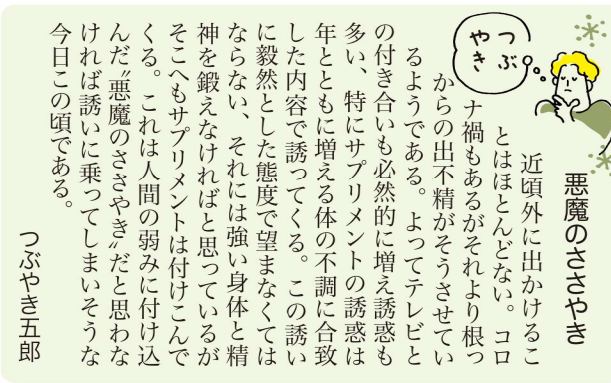 つぶ
やき
悪魔のささやき
近頃外に出かけるこ
とはほとんどない。コロ
ナ禍もあるがそれより根っ
からの出不精がそうさせてい
るようである。よってテレビと
の付き合いも必然的に増え誘惑も
多い、特にサプリメントの誘惑は
年とともに増える体の不調に合致
した内容で誘ってくる。この誘い
に毅然とした態度で望まなくては
ならない、それには強い身体と精
神を鍛えなければと思っているが
そこへもサプリメントは付けこんで
くる。これは人間の弱みに付け込
んだ〝悪魔のささやき〟だと思わな
ければ誘いに乗ってしまいそうな
今日この頃である。
つぶやき五郎